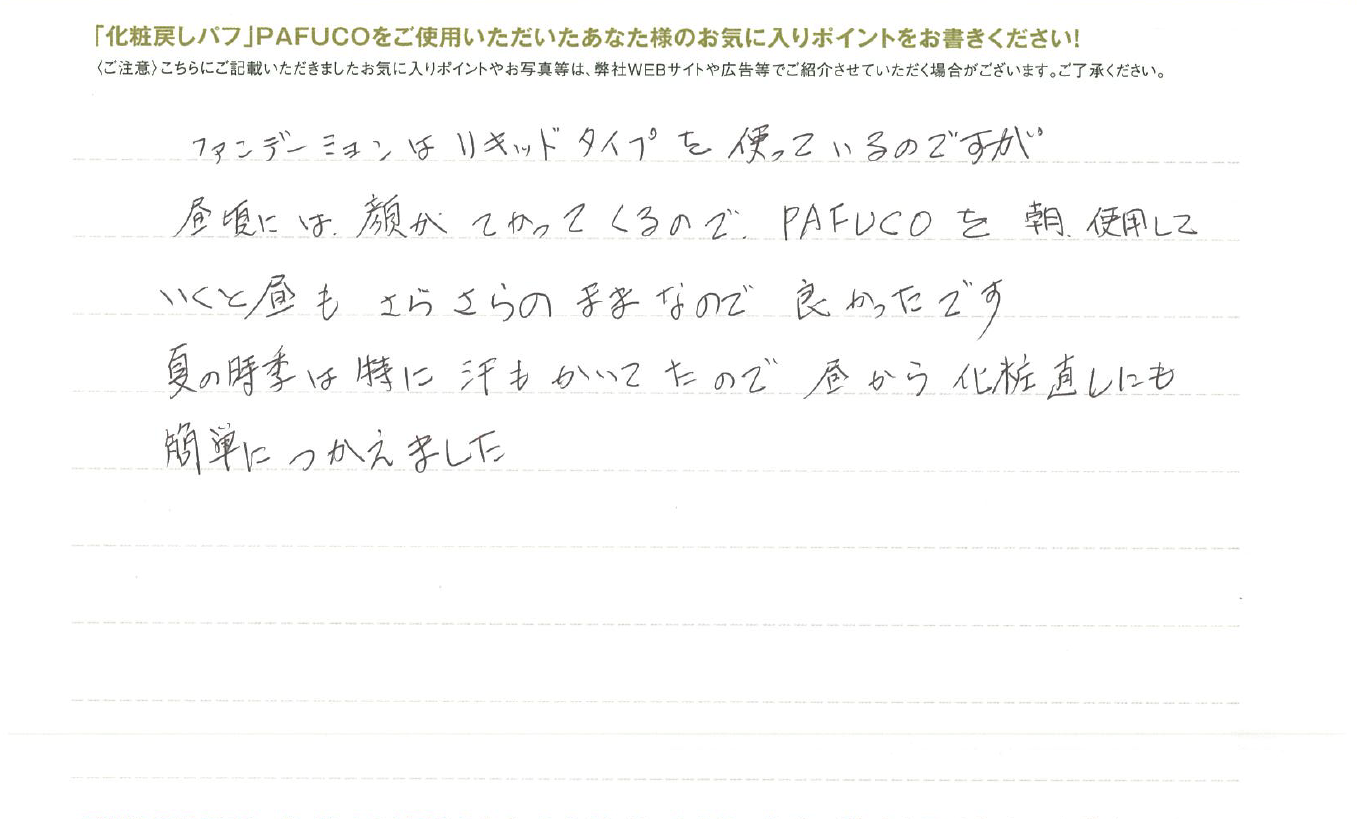 「化粧戻しパフ」PAFUCOをご使用いただいたあなた様のお気に入りポイントをお書きください!
〈ご注意〉こちらにご記載いただきましたお気に入りポイントやお写真等は、弊社WEBサイトや広告等でご紹介させていただく場合がございます。ご了承ください。
ファンデーションはリキッドタイプを使っているのですが
昼頃には、顔がてかってくるので、PAFUCOを朝、使用して
いくと昼もさらさらのままなので良かったです
夏の時季は特に汗もかいてたので昼から化粧直しにも
簡単につかえました